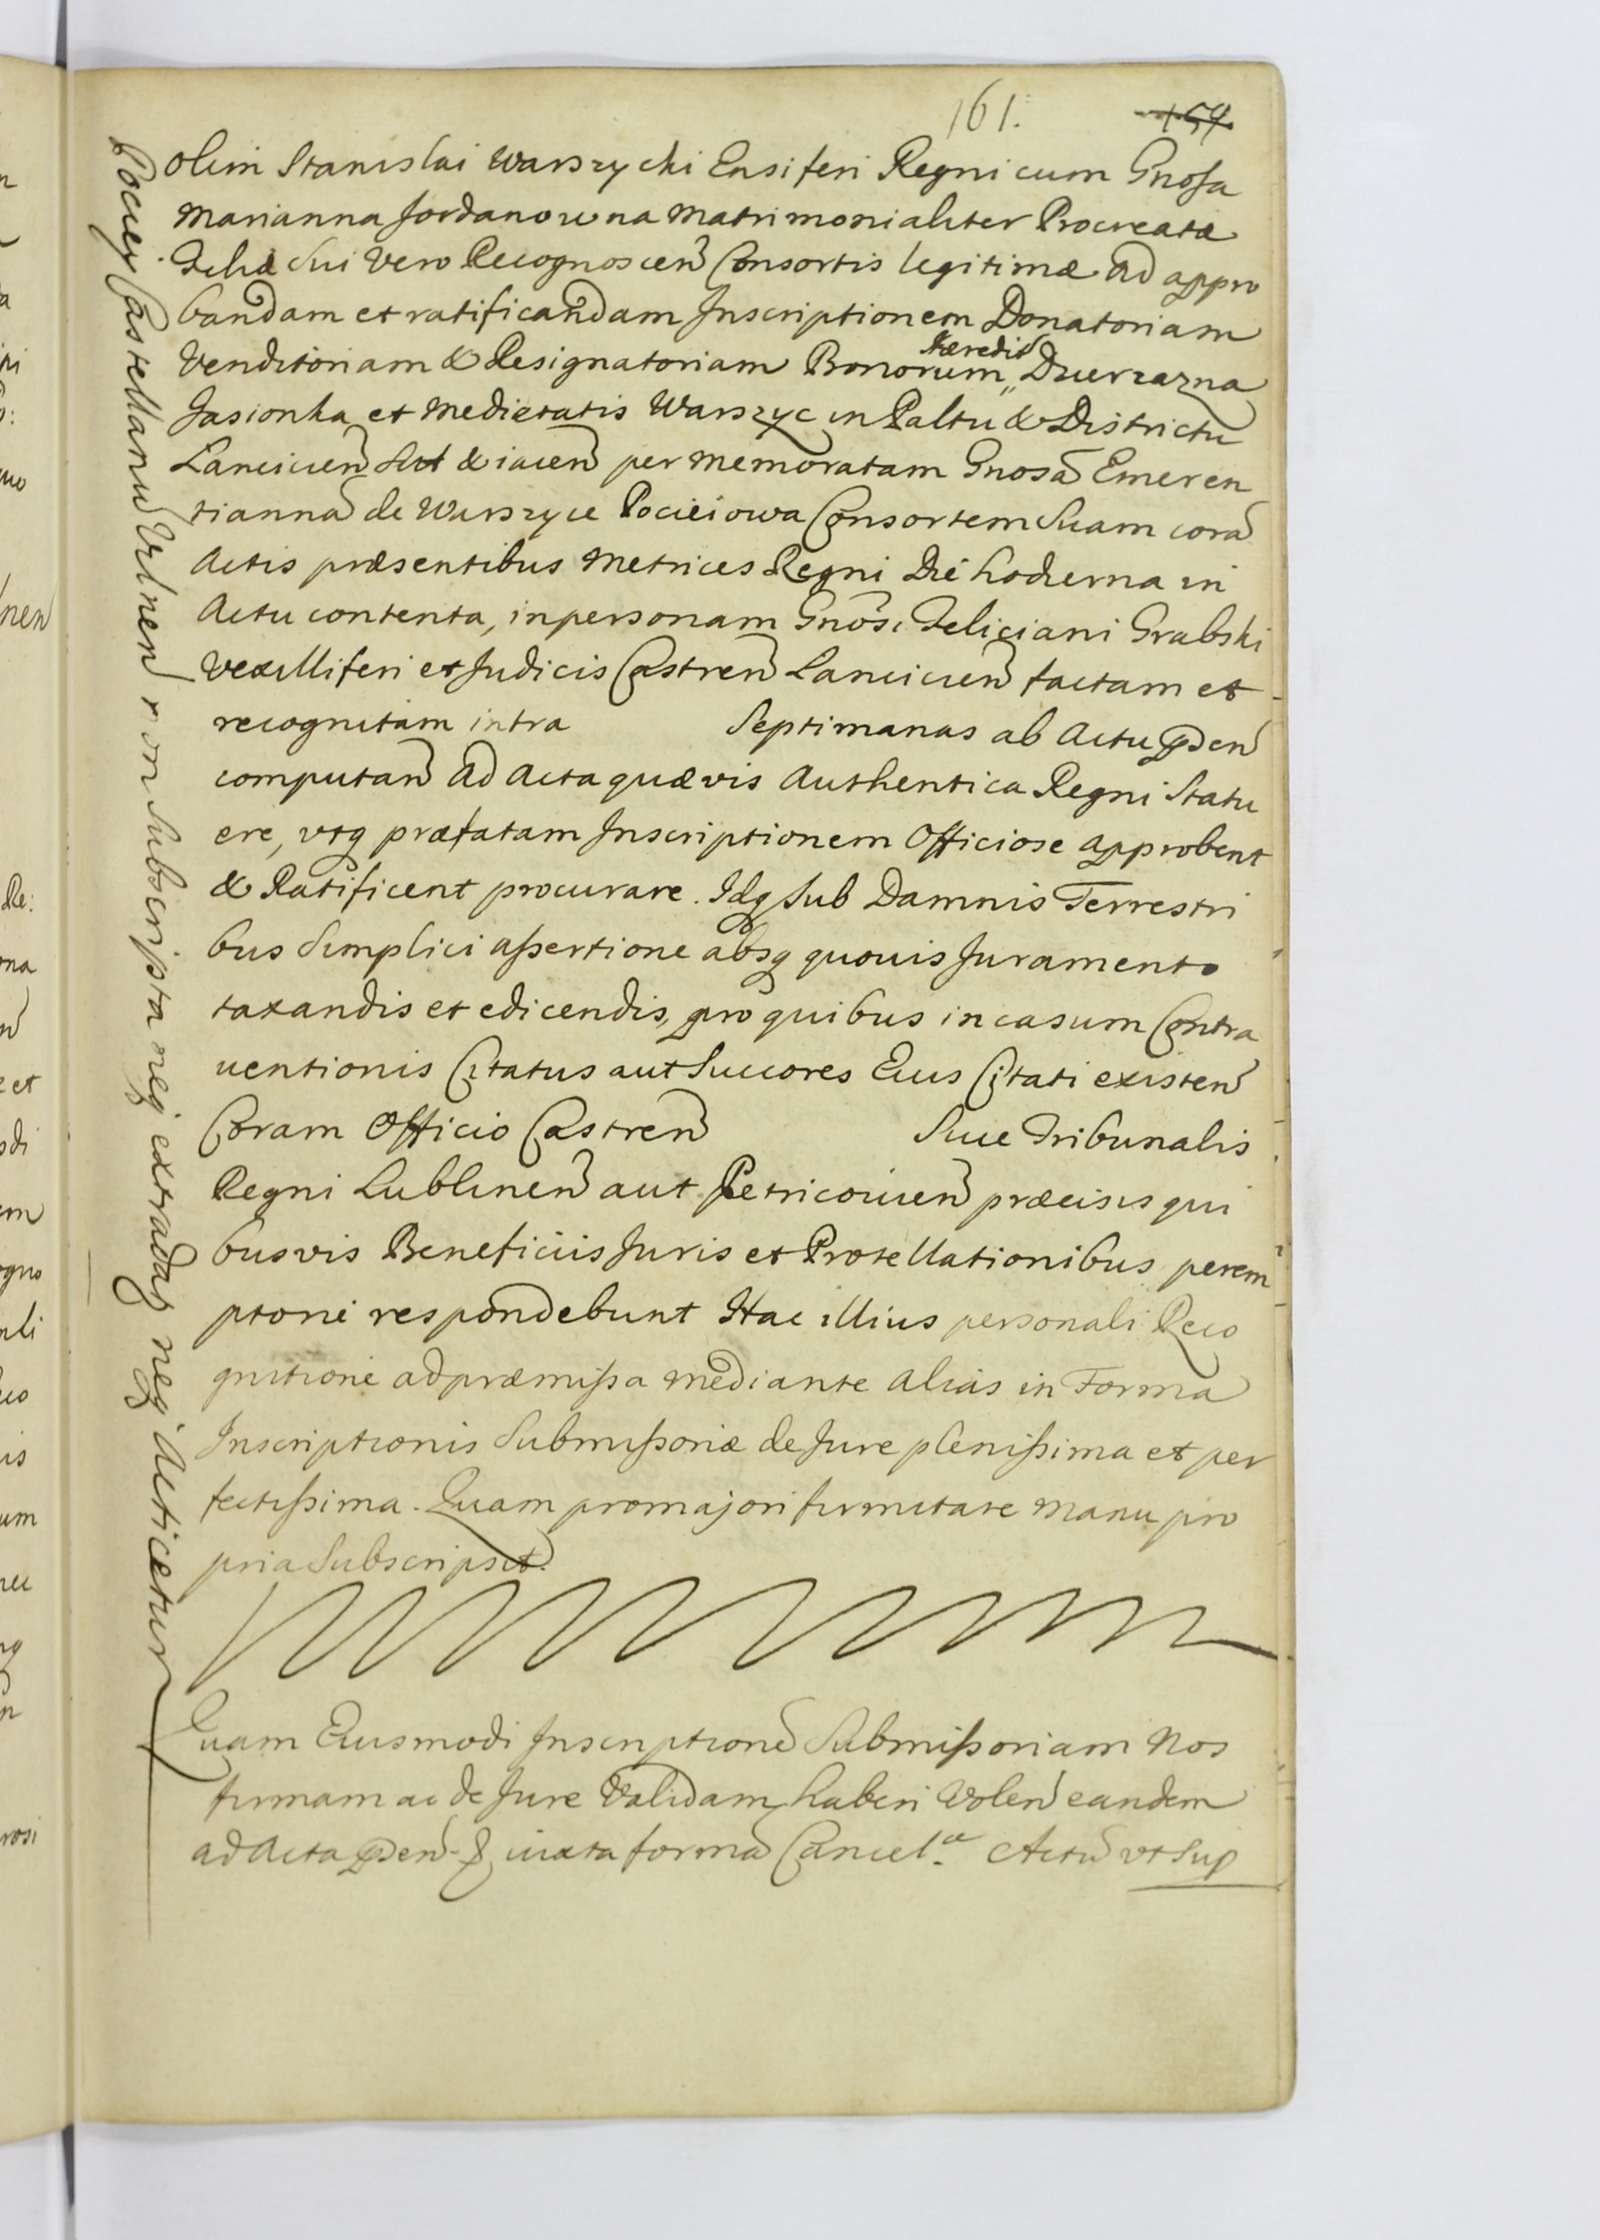 161.
159.
olim Stanislai Warszycki Ensiferi Regni cum Gnosa
Marianna Jordanowna Matrimonialiter Procreatæ
Filiæ Sui vero Recognoscen̄ Consortis legitimæ ad appro
bandam et ratificandam Inscriptionem Donatoriam
Venditoriam & Resignatoriam Bonorum Hæredit Dzierzazna
Jasionka et Medietatis Warszyc in Paltu & Districtu
Lancicien̄ Sit & iacen̄ per memoratam Gnosā Emeren
tiannā de Warszyce Pocieiowa Consortem Suam corā
Actis præsentibus Metrices Regni Die hodierna in
Actu contenta, in personam Gnosi Feliciani Grabski
Vexilliferi et Judicis Castren̄ Lancicien̄ factam et
recognitam intra Septimanas ab Actu p̄den̄
computan̄ ad Acta quævis Authentica Regni Statu
ere, vtq præfatam Inscriptionem Officiose approbent
& Ratificent procurare. Idq Sub Damnis Terrestri
bus Simplici assertione absq quouis Juramento
taxandis et edicendis, pro quibus in casum Contra
uentionis Citatus aut Succores Eius Citati existen̄
Coram Officio Castren̄ Siue Tribunalis
Regni Lublinen̄ aut Petricouien̄ præcisis qui
busvis Beneficiis Juris et Protellationibus perem
ptorie respondebunt Hac illius personali Reco
gnitione ad præmissa mediante alias in Forma
Inscriptionis Submissoriæ de Jure plenissima et per
fectissima. Quam pro majori firmitate manu pro
pria Subscripsit.
Quam Eiusmodi Inscriptionē Submissoriam Nos
firmam ac de Jure Validam haberi Volen̄ eandem
ad Acta p̄den̄ iuxta formā Cancel.æ Actū vt Sup
Pociey Castellanū Vilnen̄ non Subscripta neq extradaq neq Acticetur